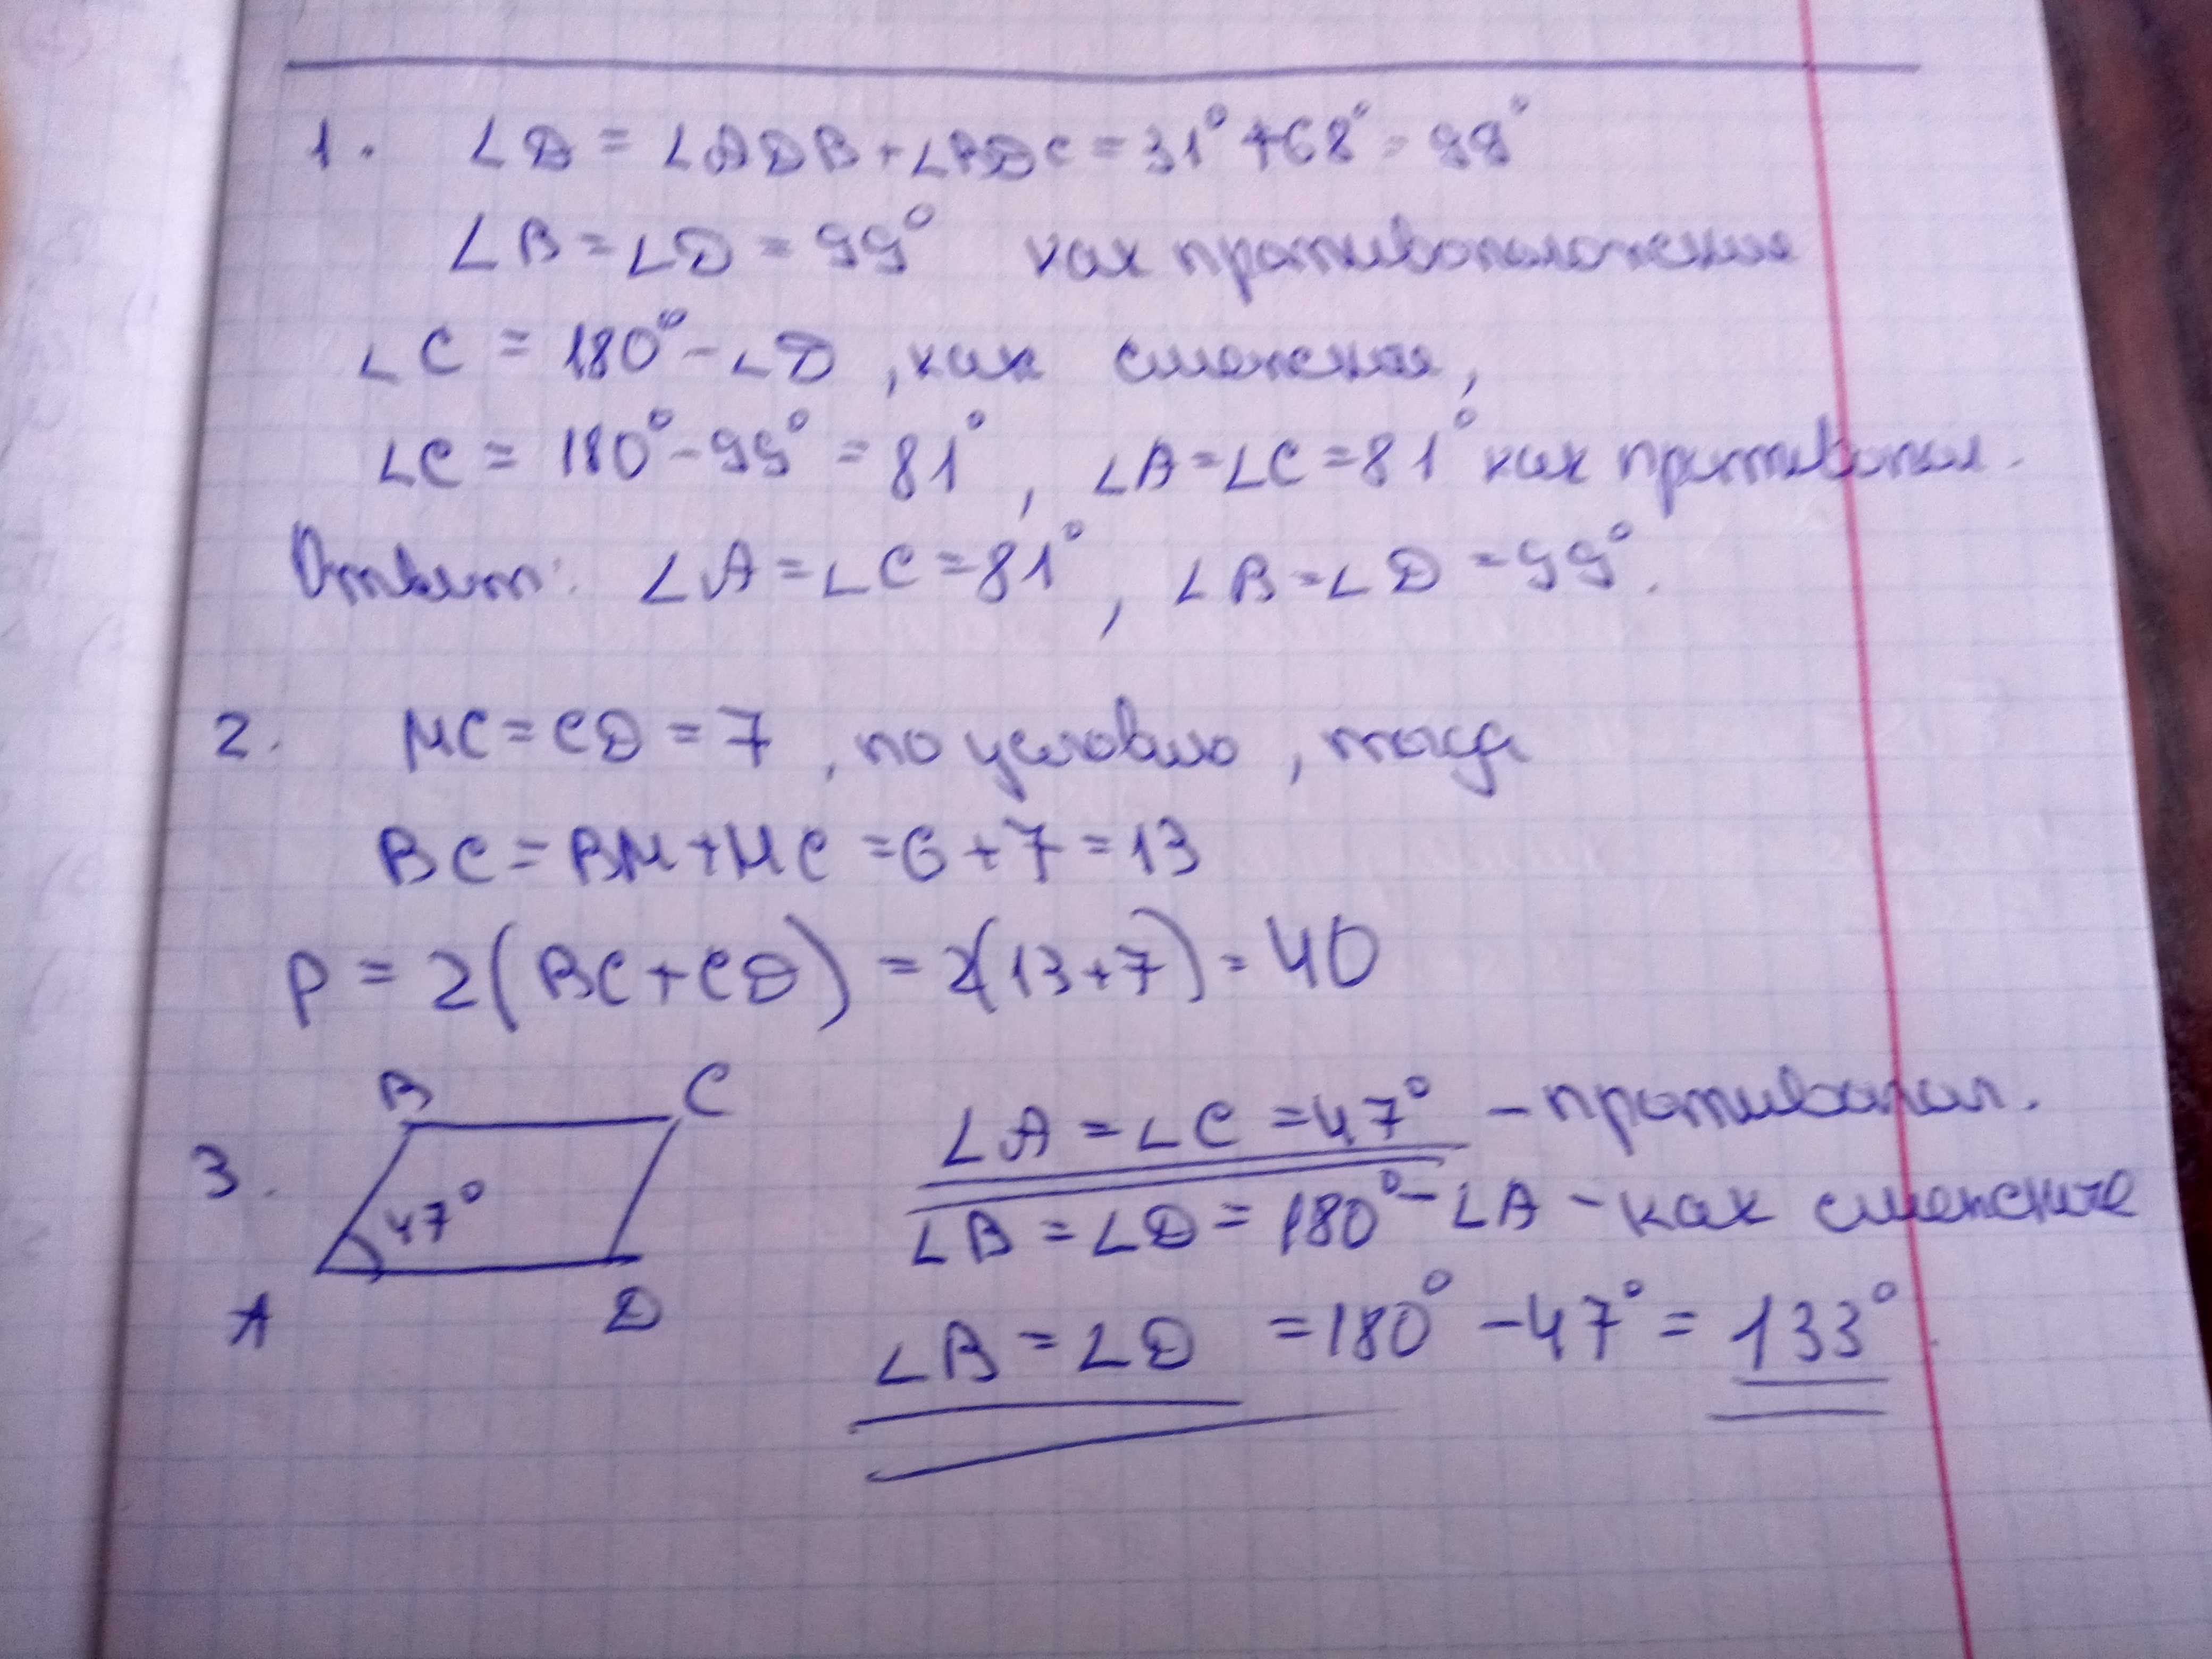 1. ∠D = ∠ADB + ∠BDC = 31° + 68° = 99°
∠B = ∠D = 99° как противоположные
∠C = 180° - ∠D, как смежные,
∠C = 180° - 99° = 81°, ∠A = ∠C = 81° как противопол.
Ответ: ∠A = ∠C = 81°, ∠B = ∠D = 99°.
2. MC = CD = 7, по условию, тогда
BC = BM + MC = 6 + 7 = 13
P = 2(BC + CD) = 2(13 + 7) = 40
B C
3. 47°
A D
∠A = ∠C = 47° - противопол.
∠B = ∠D = 180° - ∠A - как смежные
∠B = ∠D = 180° - 47° = 133°